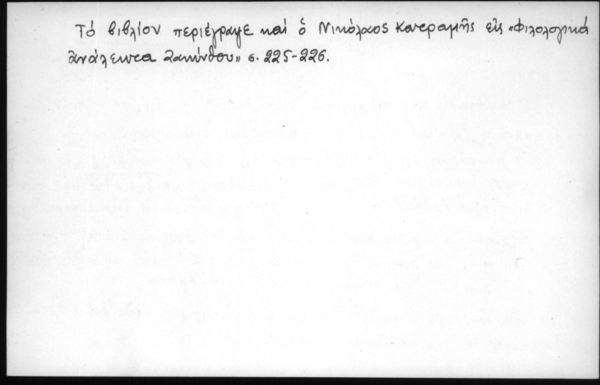 Τό βιβλίον περιέγραψε καί ὁ Νικόλαος Κατραμῆς εἰς «Φιλολογικά
ἀνάλεκτα Ζακύνθου» σ. 225-226.